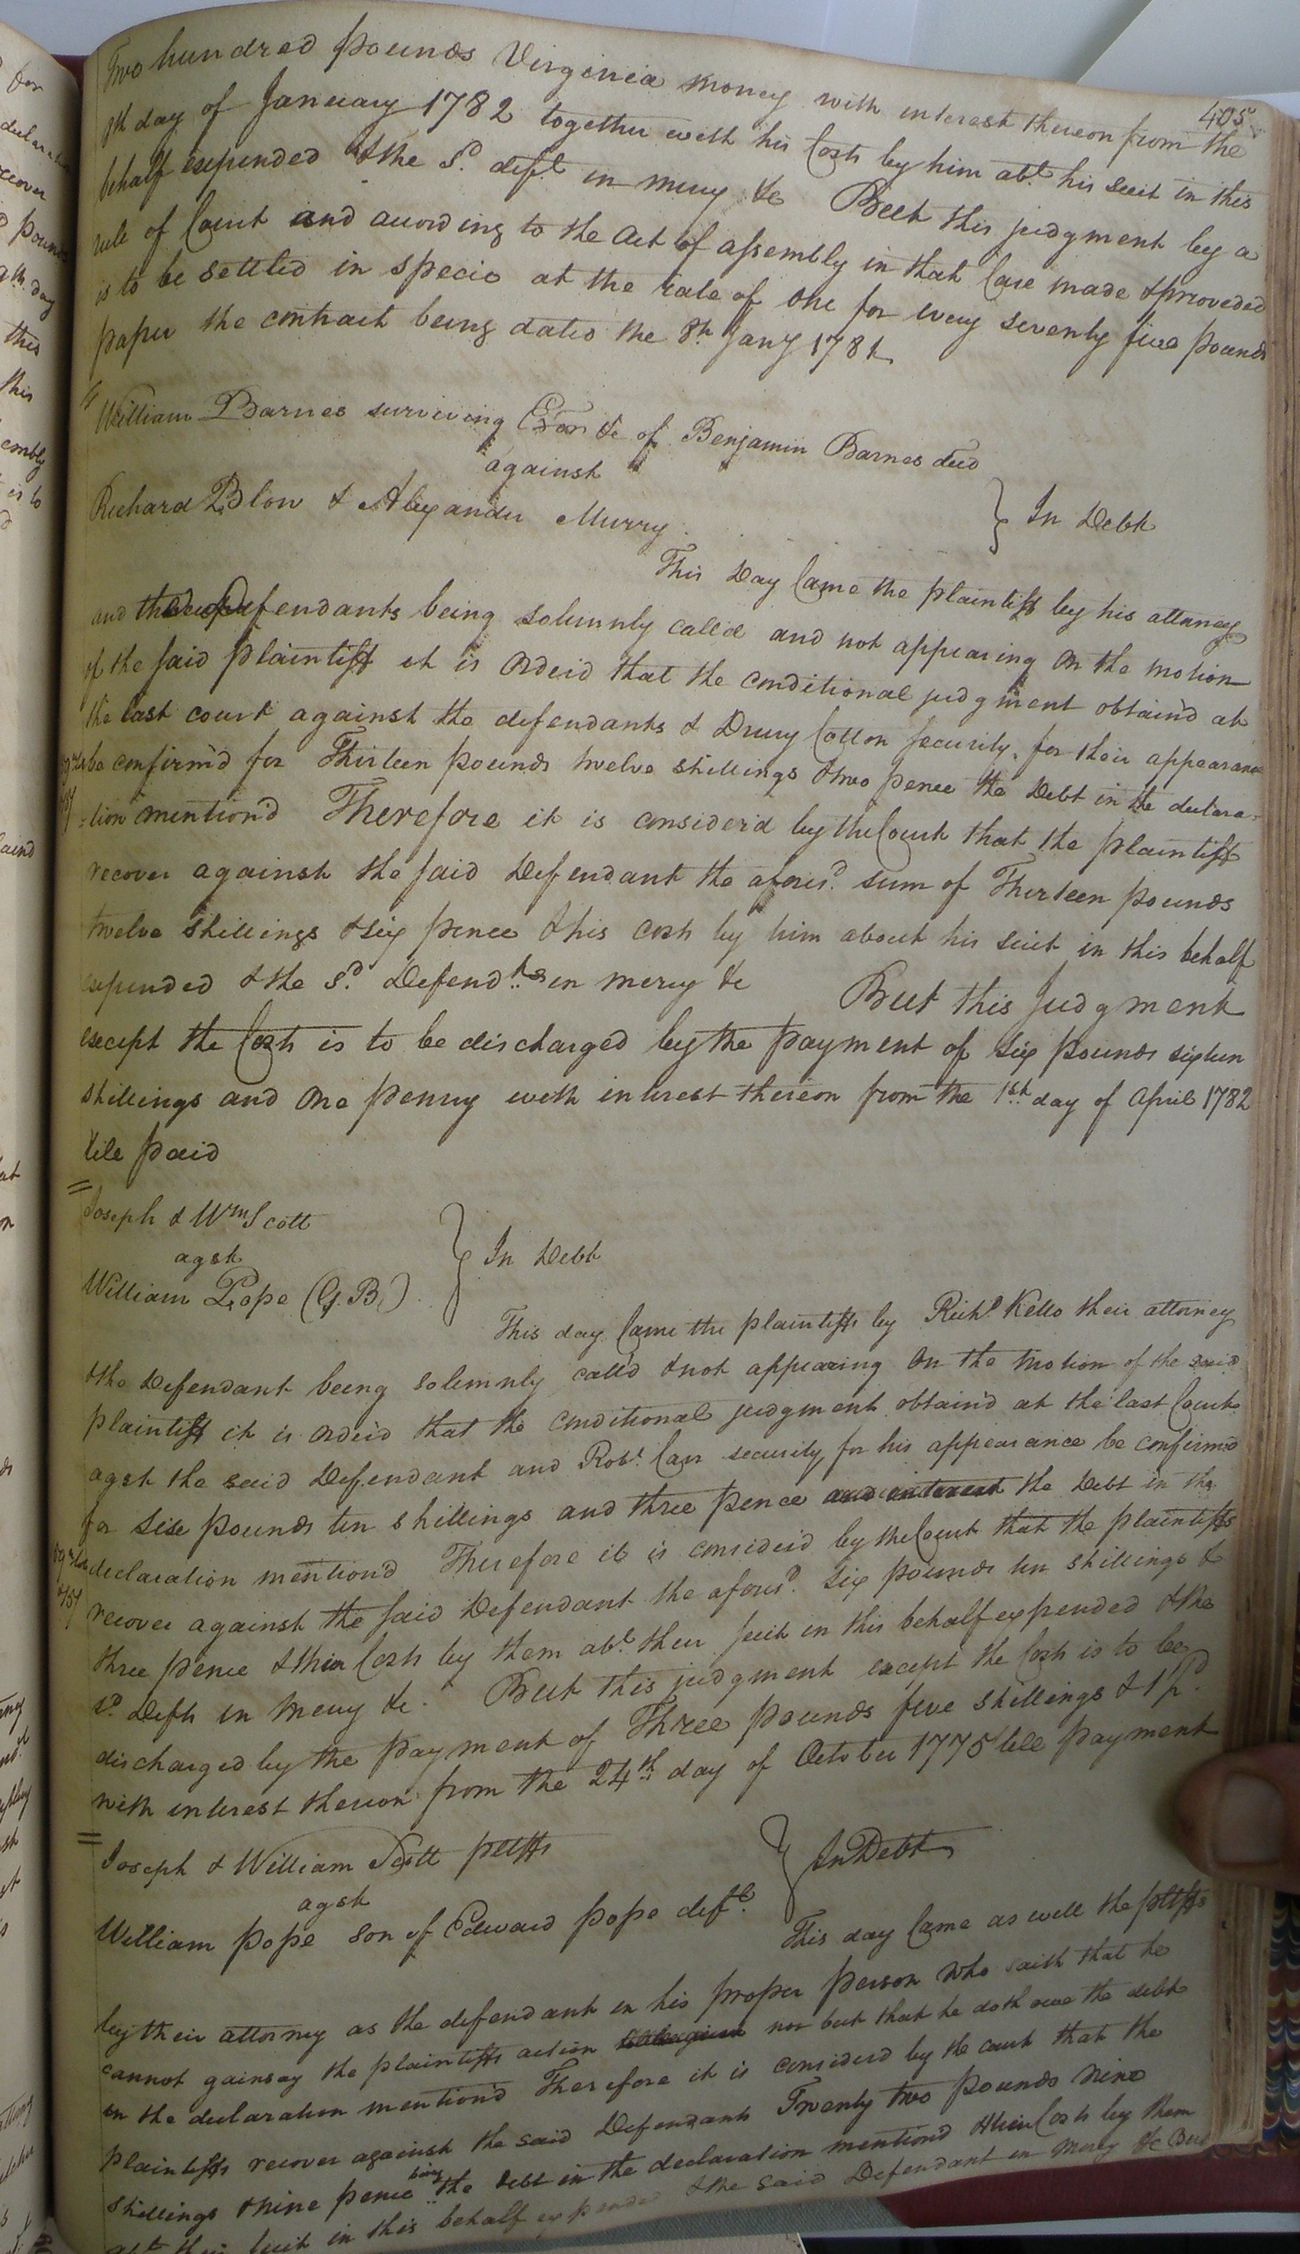 405
Two hundred pounds Virginia money with interest thereon from the
8th day of January 1782 together with his Costs by him abt his suit in this
behalf expended & the Sd. deft. in mercy &c But this judgment by a
rule of Court and according to the Act of assembly in that Case made & provided
is to be settled in specie at the rate of one for every seventy five pounds
paper the contract being dated the 8th Jany 1781
William Barnes surviving Exor &c of Benjamin Barnes decd
against
Richard Blow & Alexander Murry
In Debt
This Day Came the plaintiff by his attorney
and the Defendants being solemnly calld and not appearing On the motion
of the said plaintiff it is Orderd that the conditional judgment obtaind at
the last court against the defendants & Drury Cotton security for their appearance
be confirm'd for Thirteen pounds twelve shillings & two pence the Debt in the declara-
-tion mention'd Therefore it is consider'd by the Court that the plaintiff
recover against the said Defendant the aforesd. sum of Thirteen pounds
twelve shillings & six pence & his costs by him about his suit in this behalf
expended & the Sd. Defendts in mercy &c But this Judgment
except the Costs is to be discharged by the payment of six pounds sixteen
shillings and One penny with interest thereon from the 1st day of April 1782
till paid
Joseph & Wm Scott
agst
William Pope (G.B.)
In Debt
This day Came the plaintiffs by Richd. Kello their attorney
& the Defendant being solemnly call'd & not appearing On the motion of the said
plaintiff it is Orderd that the conditional judgment obtain'd at the last Court
agst the said Defendant and Robt. Carr security for his appearance be confirmd
for Six pounds ten shillings and three pence and interest the Debt in the
declaration mention'd Therefore it is considerd by the Court that the plaintiffs
recover against the said Defendant the aforesd. six pounds ten shillings &
three pence & their Costs by them abt. their suit in this behalf expended & the
sd. Deft in mercy &c. But this judgment except the Costs is to be
discharged by the payment of Three pounds five shillings & 1 pd.
with interest thereon from the 24th day of October 1775 till payment
Joseph & William Scott pltffs
agst
William pope son of Edward pope deft.
In Debt
This day Came as well the pltffs
by their attorney as the defendant in his proper person who saith that he
cannot gainsay the plaintiffs action nor but that he doth owe the debt
in the declaration mention'd Therefore it is considerd by the court that the
plaintiffs recover against the said Defendant Twenty two pounds nine
shillings & nine pence being the debt in the declaration mentiond & their Costs by them
abt their suit in this behalf expended & the said Defendant in mercy &c But